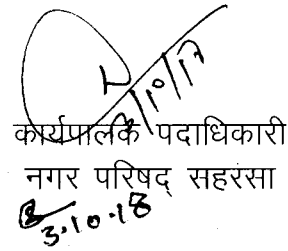 कार्यपालक पदाधिकारी
नगर परिषद् सहरसा
3.10.18